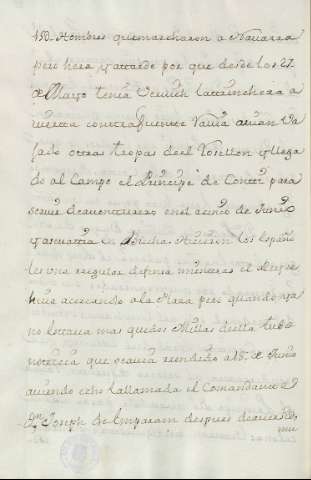 450. Hombres que marcharon a Navarra
pero hera ya tarde por que desde los 27.
de Mayo tenia Berwich la trinchera a
vierta contra fuente Ravia avian Va
jado otras tropas del Rosellon y llega
do al Campo el Principe de Conti para
servir de aventurero en el cinco de Junio
ya en Brecha hicieron los españo
les una regular defensa mientras el
hiva acercando a la Plaza pero quando ya
no distava mas que dos Millas de ella tubo
noticia que se avia rendido a 18. de Junio
aviendo echo la llamada el Comandante
Dn. Joseph de Emparam despues de aver